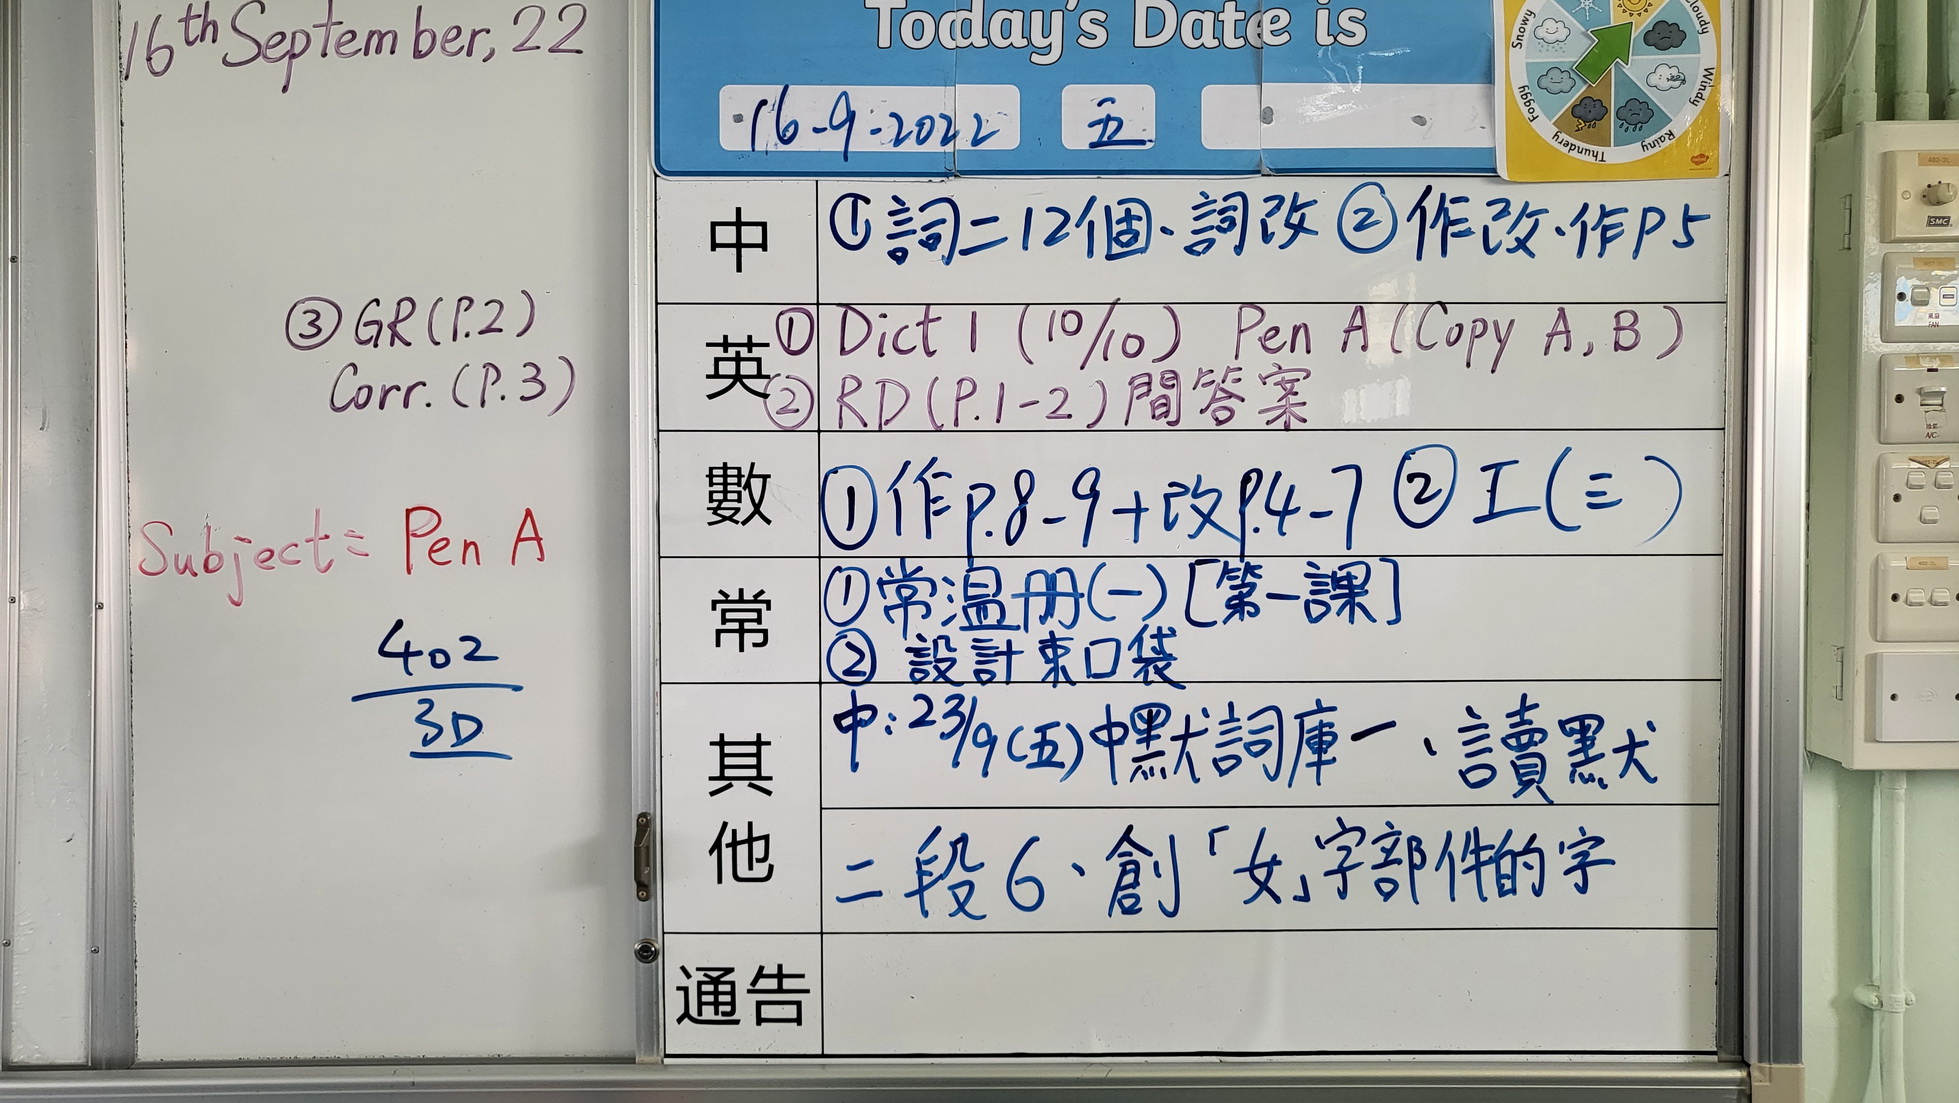 16th September, 22
③ GR (P.2)
Corr. (P.3)
Subject = Pen A
402
3D
Today's Date is
16-9-2022 五
Snowy
Cloudy
Windy
Rainy
Thundery
Foggy
中 ①詞二12個、詞改 ②作改、作P5
英 ① Dict 1 (10/10) Pen A (Copy A, B)
② RD (P.1-2) 間答案
數 ①作p.8-9+改p.4-7 ②工(三)
常 ①常溫册(一)[第一課]
② 設計束口袋
其他 中:23/9(五)中默詞庫一、讀默
二段6、創「女」字部件的字
通告
SMC
FAN
A/C